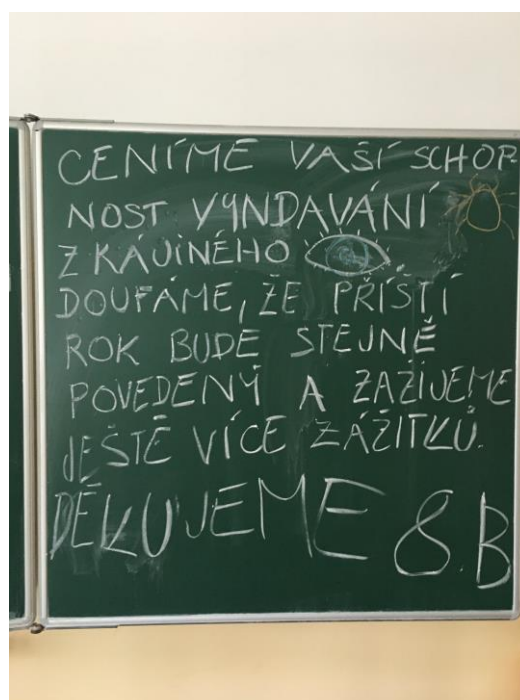 CENÍME VAŠÍ SCHOP-
NOST VYNDAVÁNÍ
Z KÁJINÉHO
DOUFÁME, ŽE PŘÍŠTÍ
ROK BUDE STEJNĚ
POVEDENÝ A ZAŽIJEME
JEŠTĚ VÍCE ZÁŽITKŮ.
DĚKUJEME 8.B